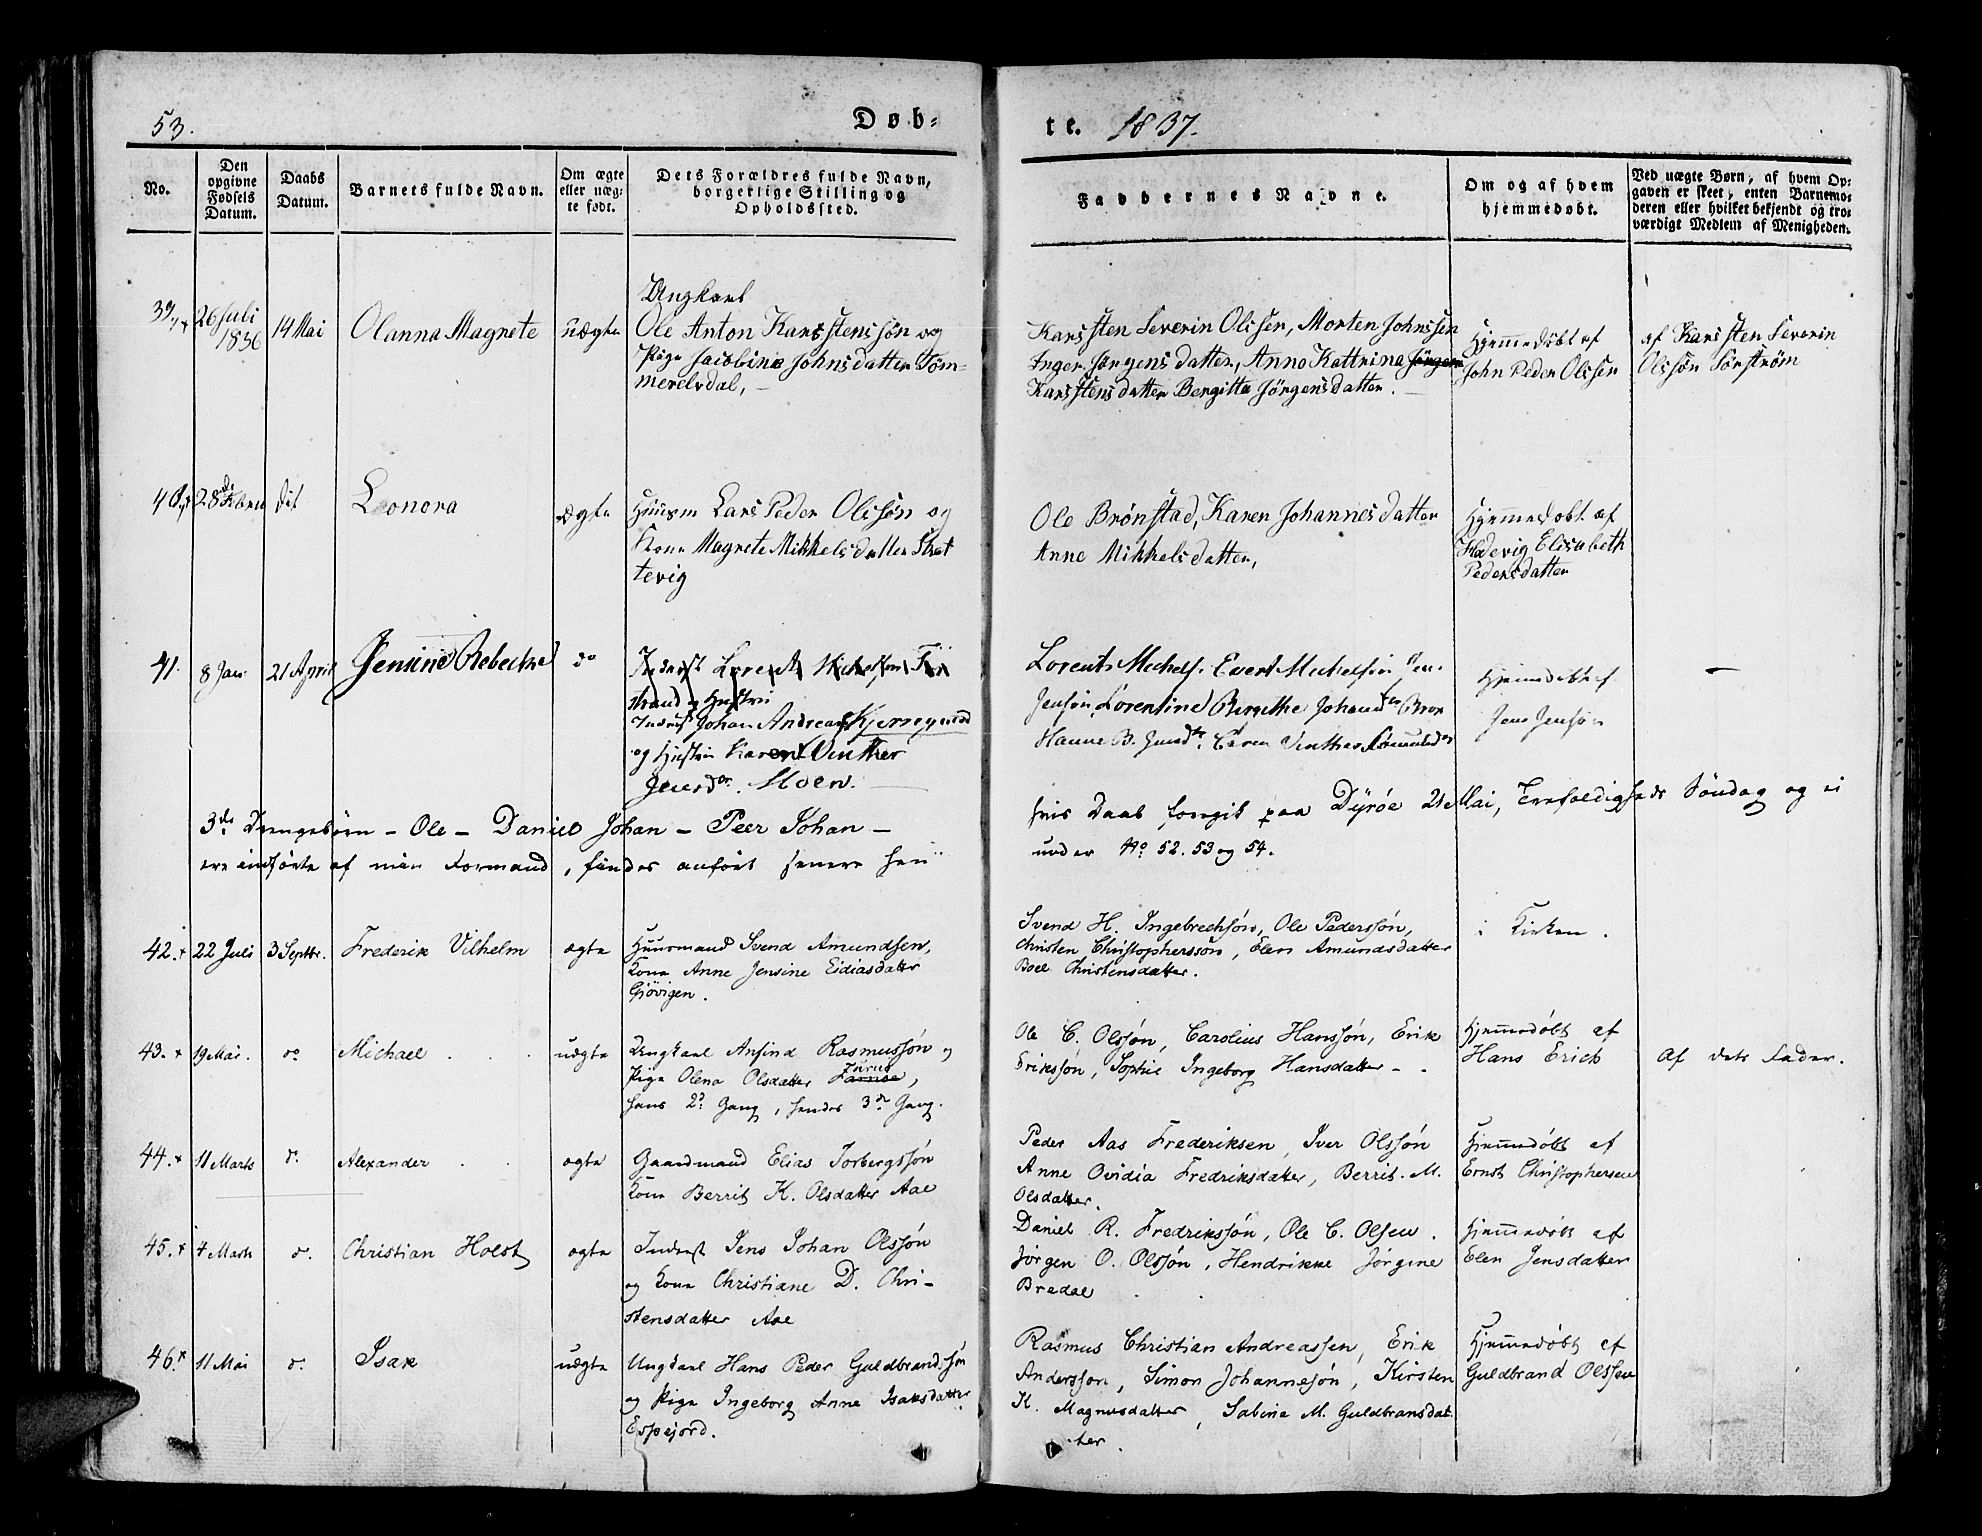 53.
Døb-
te. 1837.
No.
Den opgivne Fødsels Datum.
Daabs Datum.
Barnets fulde Navn.
Om ægte eller uæg-te født.
Dets Forældres fulde Navn, borgerlige Stilling og Opholdssted.
Faddernes Navne.
Om og af hvem hjemmedøbt.
Ved uægte Børn, af hvem Op-gaven er skeet, enten Barnemo-deren eller hvilket bekjendt og tro-værdigt Medlem af Menigheden.
39. 26 Juli 1836 14 Mai Olanna Magnete uægte
Ungkarl
Ole Anton Karsstenssøn og
Pige Jacobina Johnsdatter Tøm-
merelvdal,
Karssten Severin Olssen, Morten Johnssen
Inger Jørgensdatter, Anna Kattrina Jørgen
Karsstensdatter Bergitta Jørgensdatter.
Hjemmedøbt af
John Peder Olssen
af Karssten Severin
Olssøn Sørstrøm
40. 28de dit Leonora ægte
Huusm Lars Peder Olssøn og
Kone Magrete Mikkelsdatter
tevig
Ole Brønstad, Karen Johannesdatter
Anne Mikkelsdatter,
Hjemmedøbt af
Hedevig Elisabeth
Pedersdatter
41. 8 Jan. 21 April Jensine Rebecka do
strand og Hustru
Inderst Johan Andreas
og Hustru Karen Vinther
Jensdr. Moen.
Lorents Mechels. Evert Mechelsøn
Jensøn, Lorentine Birgithe
Hanne B.
Hjemmedøbt af
Jens Jensøn
3de Drengebørn - Ole - Daniel Johan - Peer Johan -
ere indførte af min Formand, findes anført senere hen
hvis Daab foregik paa Dyrøe 21 Mai, Trefoldigheds Søndag og ei
under No 52. 53 og 54.
42. 22 Juli 3 Septbr. Frederik Vilhelm ægte
Huusmand Svend Amundsen,
Kone Anne Jensine Eidiasdatter
Gjøvigen.
Svend H. Ingebrechsøn, Ole Pederssøn,
Christen Christopherssøn, Elen Amundsdatter
Boel Christensdatter.
i Kirken.
43. 19 Mai. do Michael uægte
Ungkarl Anfind Rasmussøn og
Pige Olena Olsdatter
hans 2d Gang, hendes 3de Gang.
Ole C. Olssøn, Carolius Hanssøn, Erik
Erikssøn, Sophie Ingeborg Hansdatter -
Hjemmedøbt af
Hans Erich
Af dets Fader.
44. 11 Marts do. Alexander ægte
Gaardmand Elias Torbergssøn
Kone Berrit K. Olsdatter Aae
Peder Aas Frederiksen, Iver Olssøn
Anne Ovidia Fredriksdatter, Berrit M.
Olsdatter.
Hjemmedøbt af
Ernst Christophersen
45. 4 Marts do. Christian Holst ægte
Inderst Jens Johan Olssøn
og Kone Christiane D. Chri-
stensdatter Aae
Daniel R. Fredrikssøn, Ole C. Olsen.
Jørgen O. Olssøn, Hendrikke Jørgine
Bredal
Hjemmedøbt af
Elen Jensdatter
46. 11 Mai do. Isak uægte
Ungkarl Hans Peder Guldbrandssøn
og Pige Ingeborg Anne Isaksdatter
Espejord.
Rasmus Christian Andreassen, Erik
Anderssøn, Simon Johannesøn, Kirsten
K. Magnusdatter, Sabine M. Guldbransdat
ter.
Hjemmedøbt af
Guldbrand Olssen